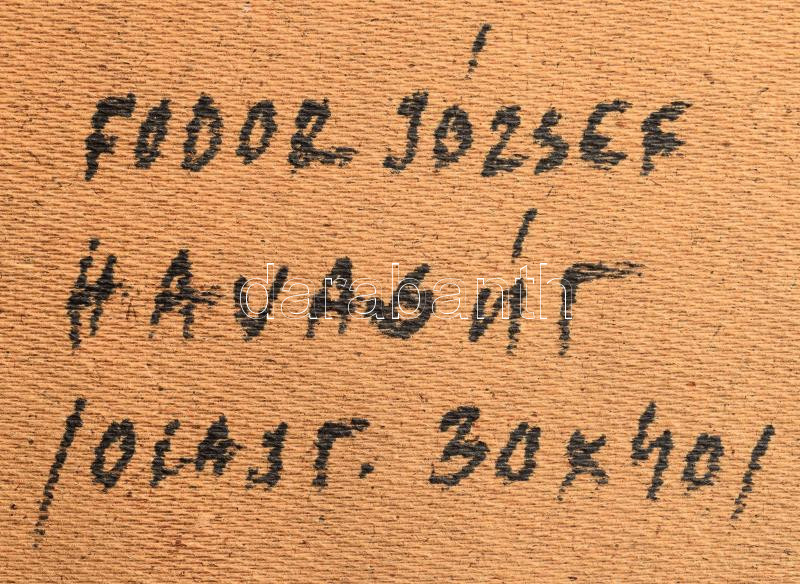 FODOR JÓZSEF
HAVAS ÚT
/OLAJT. 30x40/
darabanth